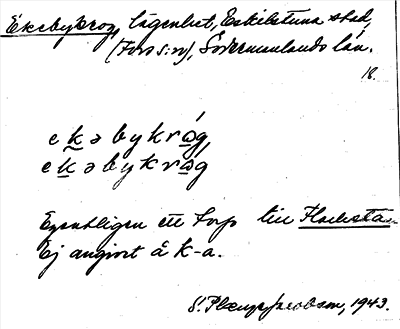 Ekebykrog, lägenhet, Eskilstuna stad,
(Fors s:n), Södermanlands län.
18.
ekəbykrǿg,
ekəbykrǿg,
Egentligen ett torp till
Ej angivet å k-a.
1943.